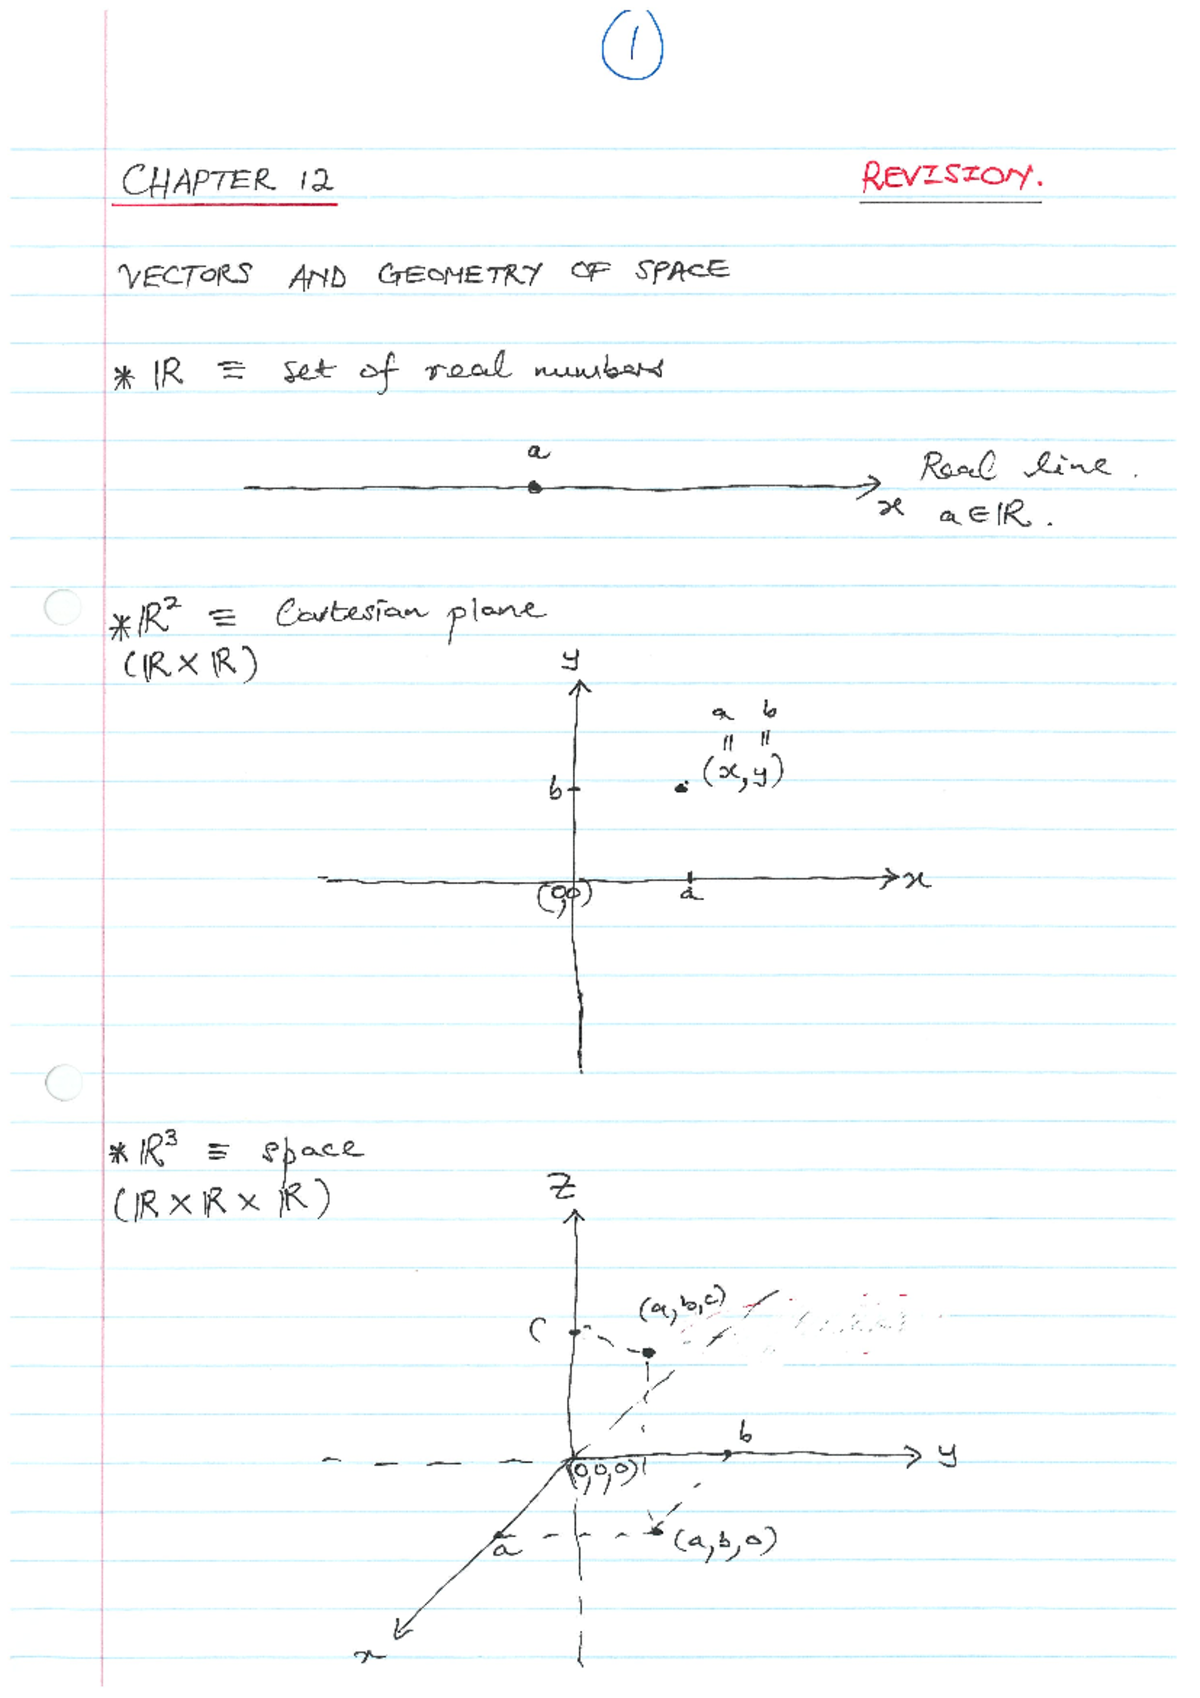 1
CHAPTER 12 REVISION.
VECTORS AND GEOMETRY OF SPACE
* ℝ ≡ set of real numbers
a
Real line.
x a∈ℝ.
*ℝ² ≡ Cartesian plane
(ℝ×ℝ)
y
a b
|| ||
(x,y)
b
x
(0,0) a
*ℝ³ ≡ space
(ℝ×ℝ×ℝ)
Z
(a,b,c)
c
b
y
(0,0,0)
a (a,b,0)
x